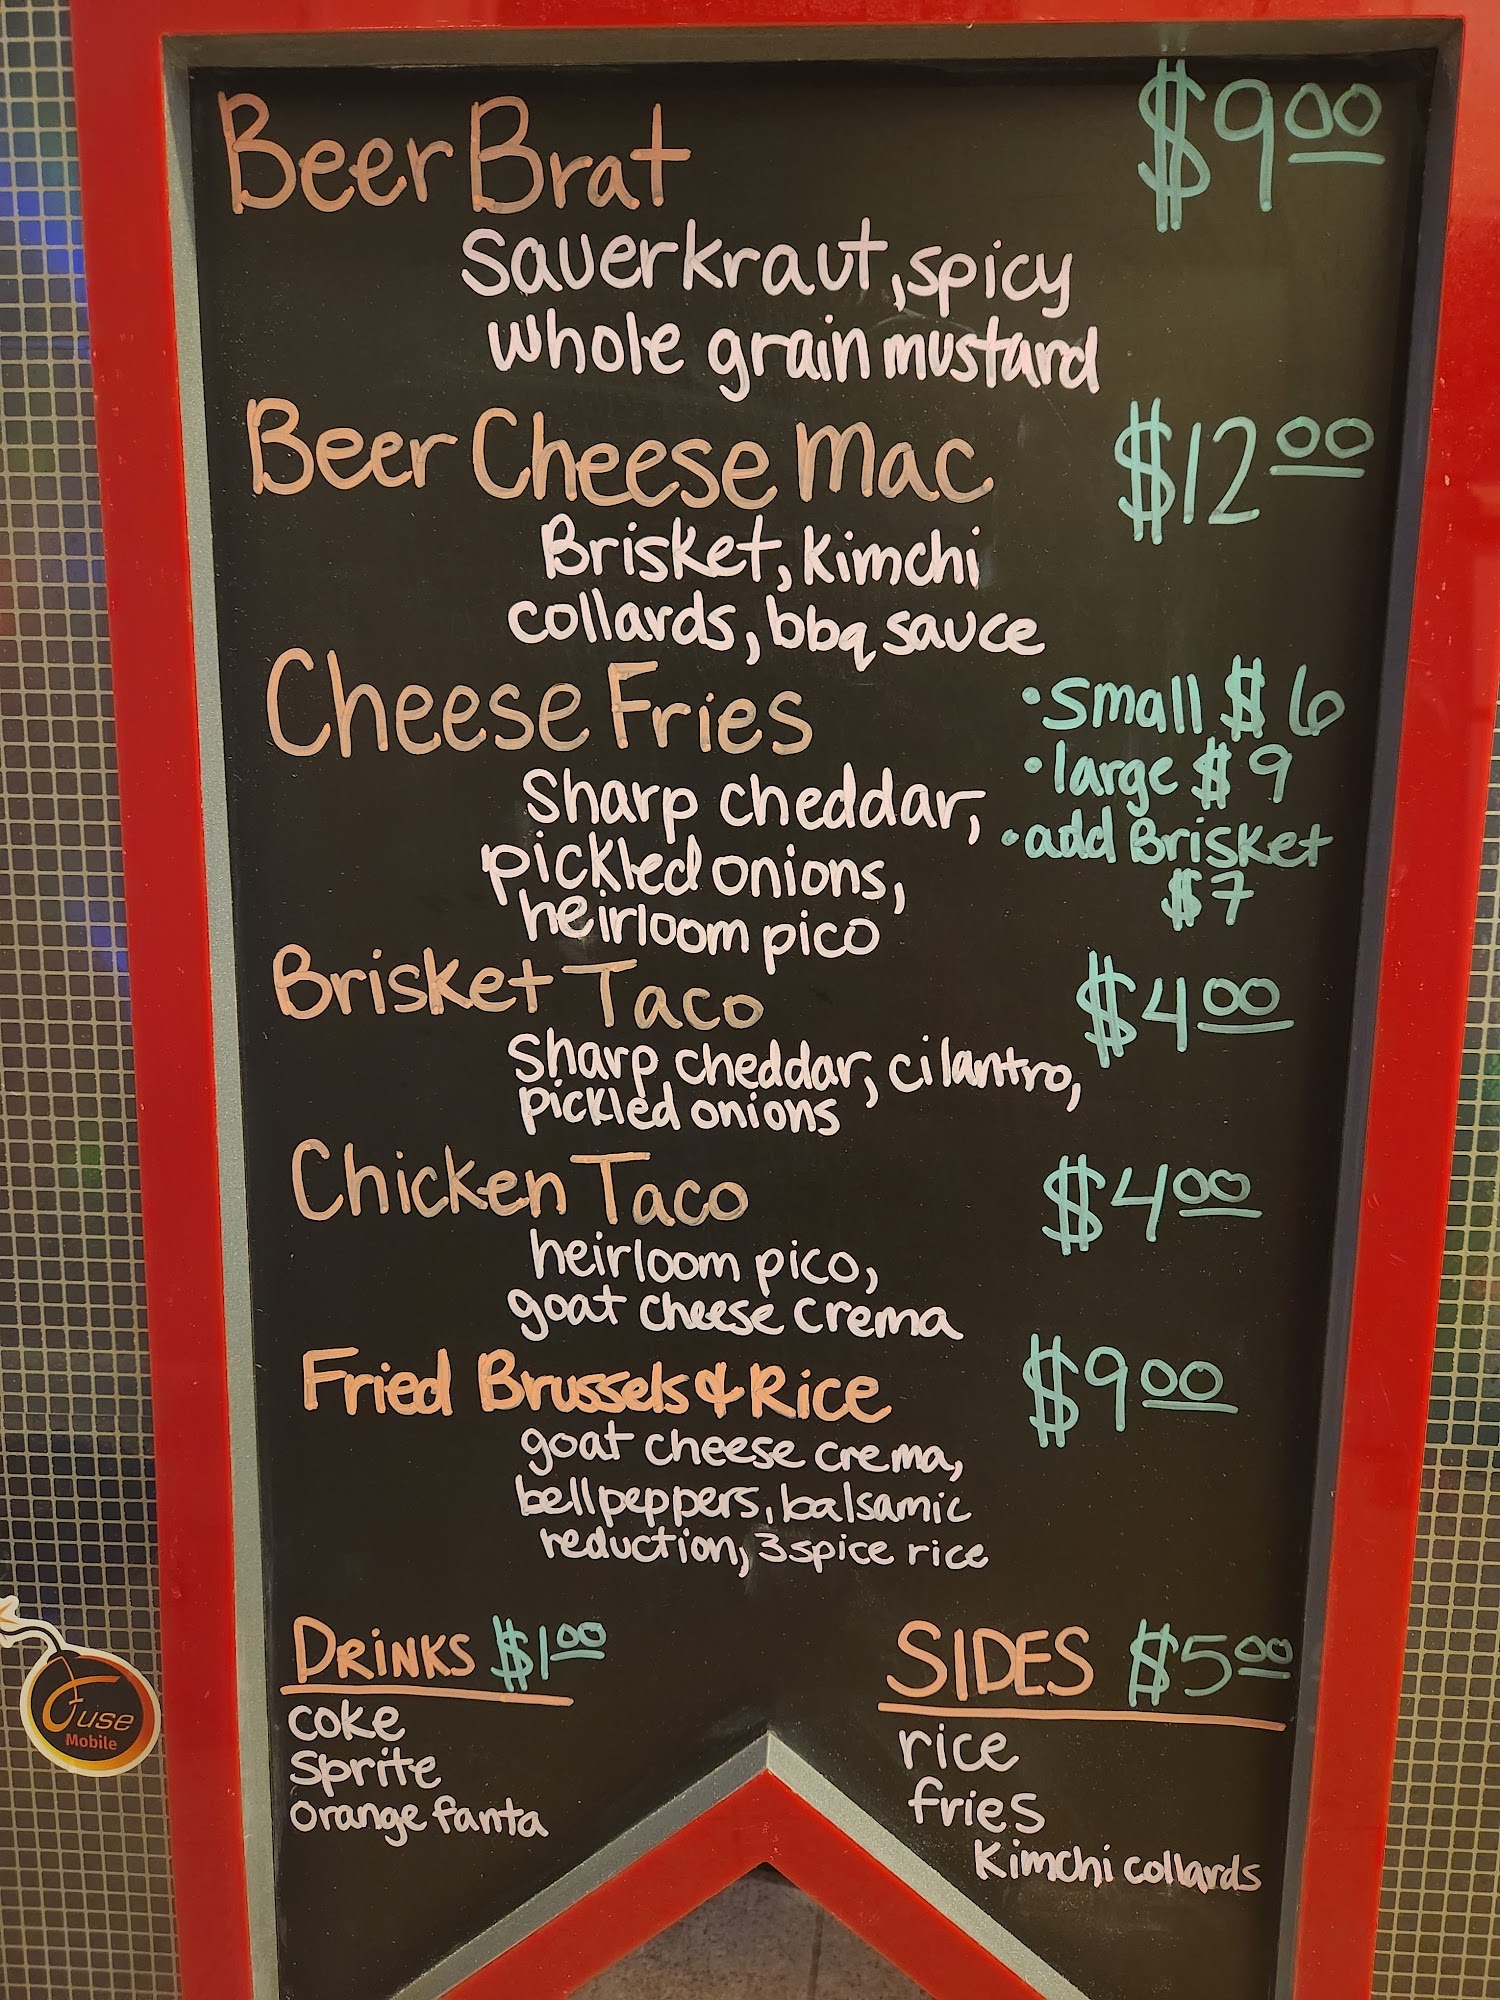 Beer Brat $9.00
Sauerkraut, spicy
whole grain mustard
Beer Cheese Mac $12.00
Brisket, Kimchi
collards, bbq sauce
Cheese Fries
• small $6
• large $9
• add Brisket
$7
Sharp cheddar,
pickled onions,
heirloom pico
Brisket Taco $4.00
Sharp cheddar, cilantro,
pickled onions
Chicken Taco $4.00
heirloom pico,
goat cheese crema
Fried Brussels & Rice $9.00
goat cheese crema,
bell peppers, balsamic
reduction, 3 spice rice
DRINKS $1.00
coke
Sprite
Orange fanta
SIDES $5.00
rice
fries
Kimchi collards
Fuse
Mobile